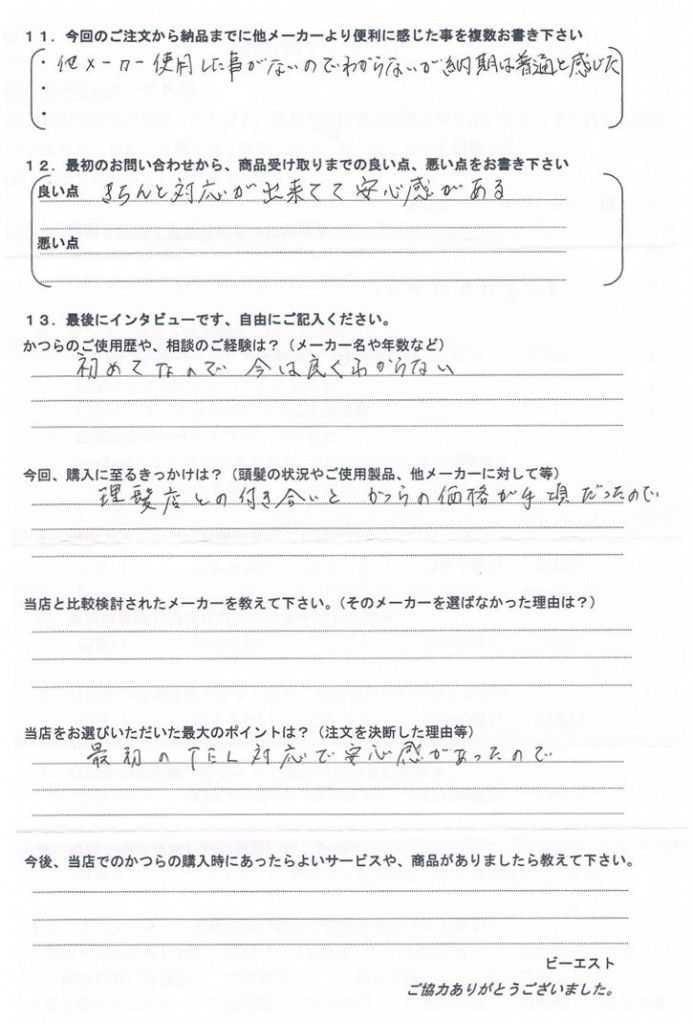 11．今回のご注文から納品までに他メーカーより便利に感じた事を複数お書き下さい
・他メーカー使用した事がないのでわからないが納期は普通と感じた
・
・
12．最初のお問い合わせから、商品受け取りまでの良い点、悪い点をお書き下さい
良い点 きちんと対応が出来てて安心感がある
悪い点
13．最後にインタビューです、自由にご記入ください。
かつらのご使用歴や、相談のご経験は？（メーカー名や年数など）
初めてなので 今は良くわからない
今回、購入に至るきっかけは？（頭髪の状況やご使用製品、他メーカーに対して等）
理髪店との付き合いと かつらの価格が手頃だったので
当店と比較検討されたメーカーを教えて下さい。（そのメーカーを選ばなかった理由は？）
当店をお選びいただいた最大のポイントは？（注文を決断した理由等）
最初のTEL対応で安心感があったので
今後、当店でのかつらの購入時にあったらよいサービスや、商品がありましたら教えて下さい。
ビーエスト
ご協力ありがとうございました。